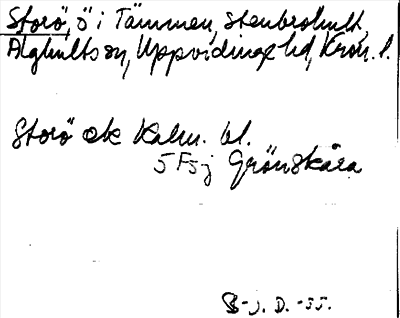 Storö, ö i Tämmen, Stenbrohult,
Älghults sn, Uppvidinge hd, Kron. l.
Storö ek Kalm. bl.
5 F 5 j Grönskåra
S-j. D. -55.